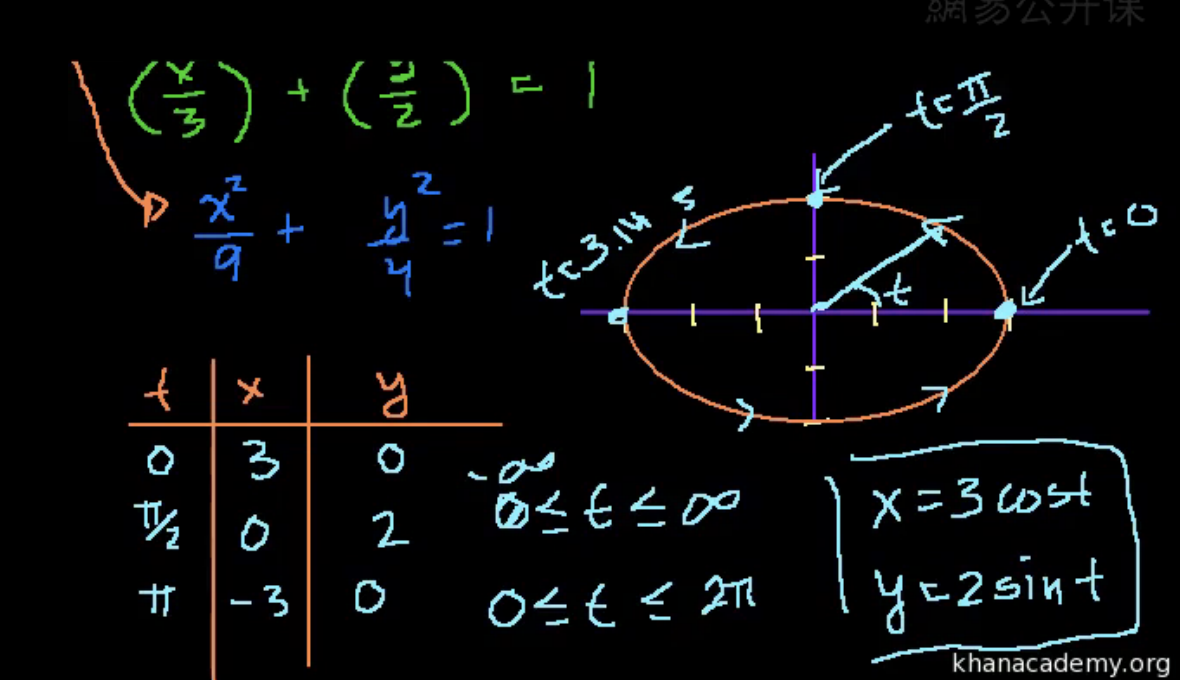 網易公开课
(x/3) + (y/2) = 1
x²/9 + y²/4 = 1
t=π/2
t=0
t=3.14 s
t
t x y
0 3 0
π/2 0 2
π -3 0
-∞
0 ≤ t ≤ ∞
0 ≤ t ≤ 2π
x = 3 cos t
y = 2 sin t
khanacademy.org